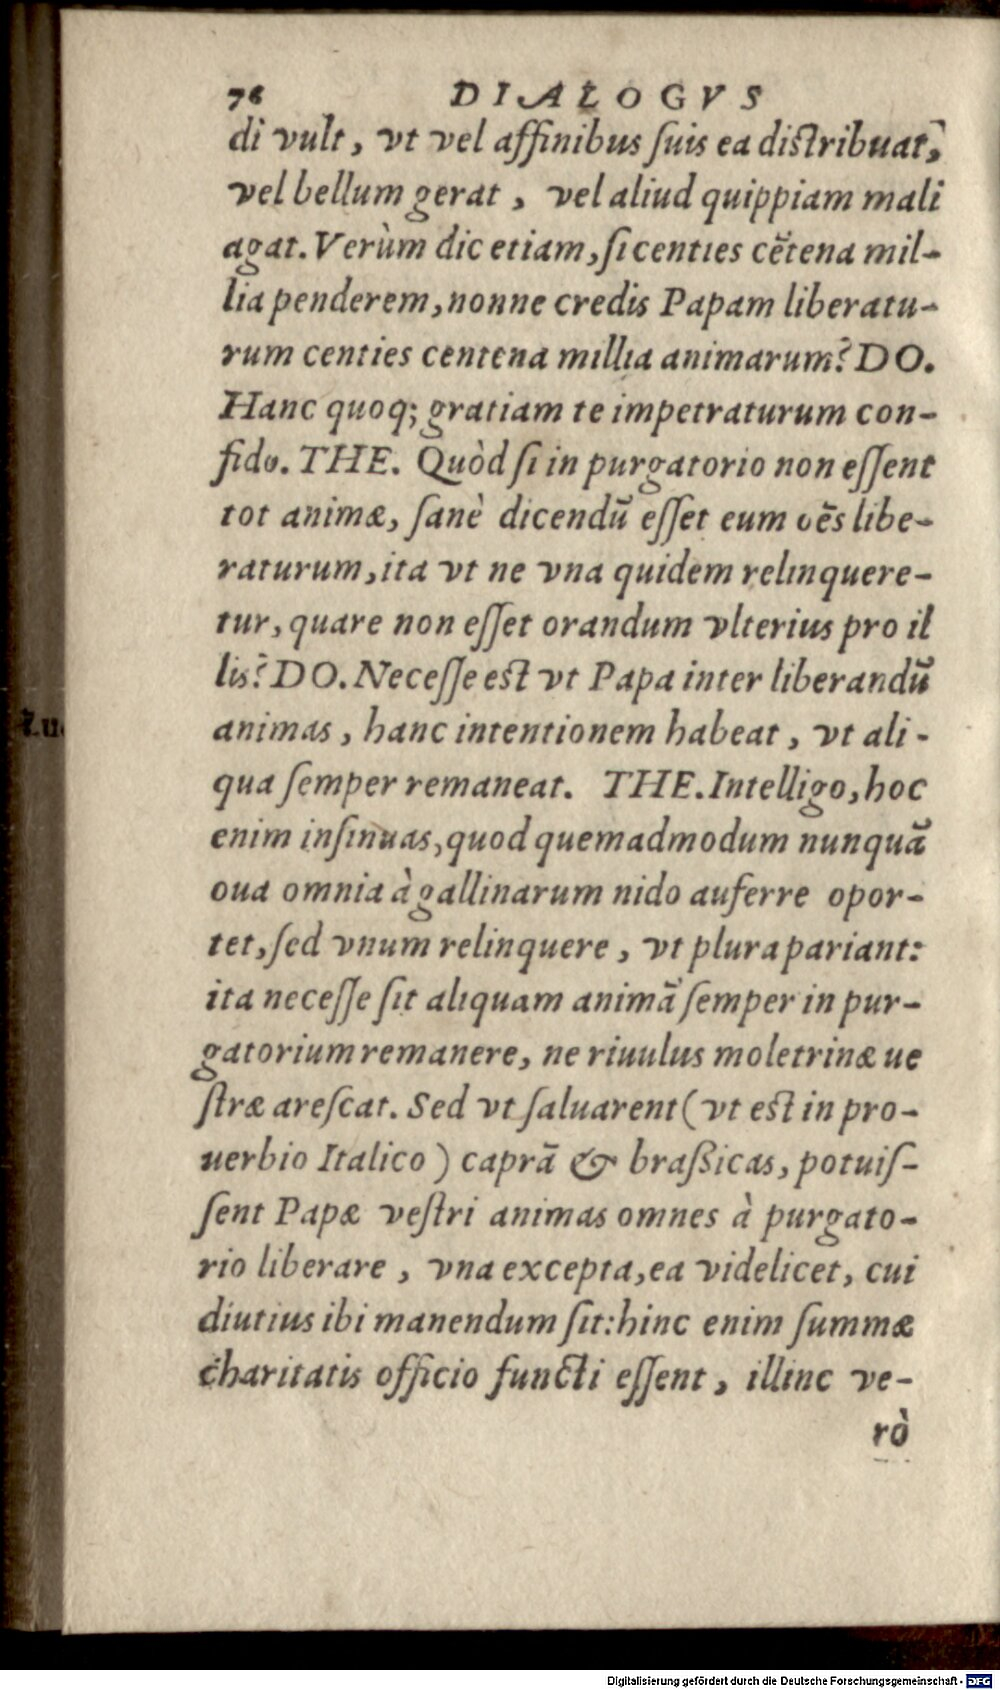 76 DIALOGVS
di vult, vt vel affinibus ſuis ea diſtribuat,
vel bellum gerat, vel aliud quippiam mali
agat. Verùm dic etiam, ſi centies cẽtena mil-
lia penderem, nonne credis Papam liberatu-
rum centies centena millia animarum? DO.
Hanc quoq; gratiam te impetraturum con-
fido. THE. Quòd ſi in purgatorio non eſſent
tot animæ, ſanè dicendũ eſſet eum oẽs libe-
raturum, ita vt ne vna quidem relinquere-
tur, quare non eſſet orandum vlterius pro il
lis? DO. Neceſſe eſt vt Papa inter liberandũ
animas, hanc intentionem habeat, vt ali-
qua ſemper remaneat. THE. Intelligo, hoc
enim inſinuas, quod quemadmodum nunquã
oua omnia à gallinarum nido auferre opor-
tet, ſed vnum relinquere, vt plura pariant:
ita neceſſe ſit aliquam animã ſemper in pur-
gatorium remanere, ne riuulus moletrinæ ue
ſtræ areſcat. Sed vt ſaluarent (vt eſt in pro-
uerbio Italico) caprã & braſsicas, potuiſ-
ſent Papæ veſtri animas omnes à purgato-
rio liberare, vna excepta, ea videlicet, cui
diutius ibi manendum ſit: hinc enim ſummæ
charitatis officio functi eſſent, illinc ve-
rò
Digitalisierung gefördert durch die Deutsche Forschungsgemeinschaft - DFG